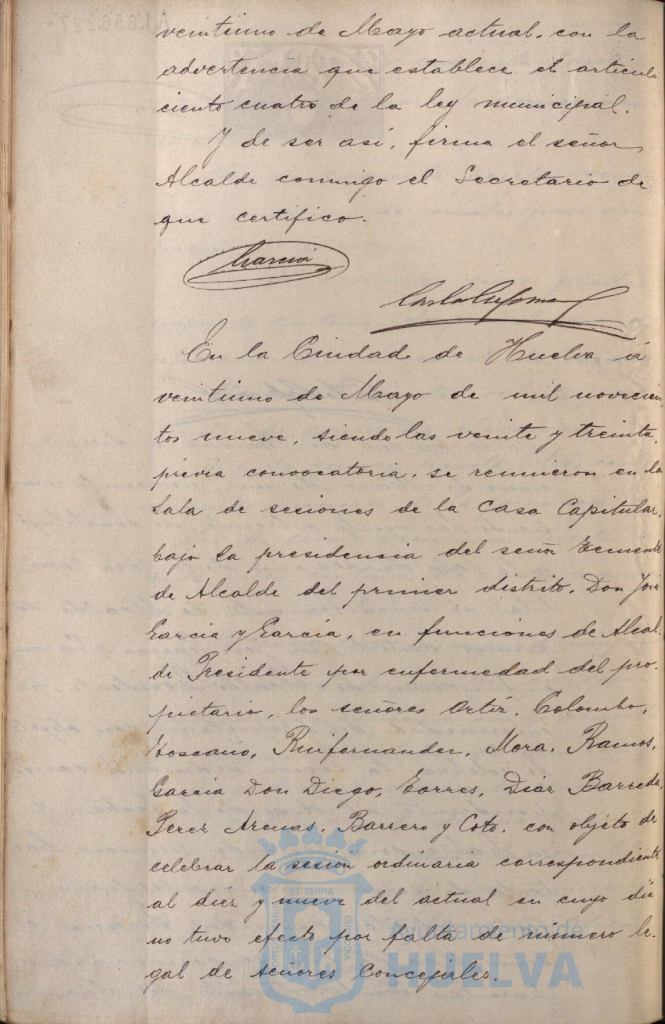 veintiuno de Mayo actual, con la
advertencia que establece el artículo
ciento cuatro de la ley municipal.
Y de ser así, firma el señor
Alcalde conmigo el Secretario de
que certifico.
García
En la Ciudad de Huelva á
veintiuno de Mayo de mil novecien
tos nueve, siendo las veinte y treinta,
previa convocatoria, se reunieron en la
Sala de sesiones de la Casa Capitular,
bajo la presidencia del señor Teniente
de Alcalde del primer distrito, Don José
García y García, en funciones de Alcal-
de Presidente por enfermedad del pro-
pietario, los señores Ortiz, Colombo,
Toscano, Ruifernandez, Mora, Ramos,
García Don Diego, Torres, Díaz Barreda,
Perez Arenas, Barrero y Coto, con objeto de
celebrar la sesión ordinaria correspondiente
al diez y nueve del actual en cuyo día
no tuvo efecto por falta de número le-
gal de señores Concejales.
Ayuntamiento de
HUELVA